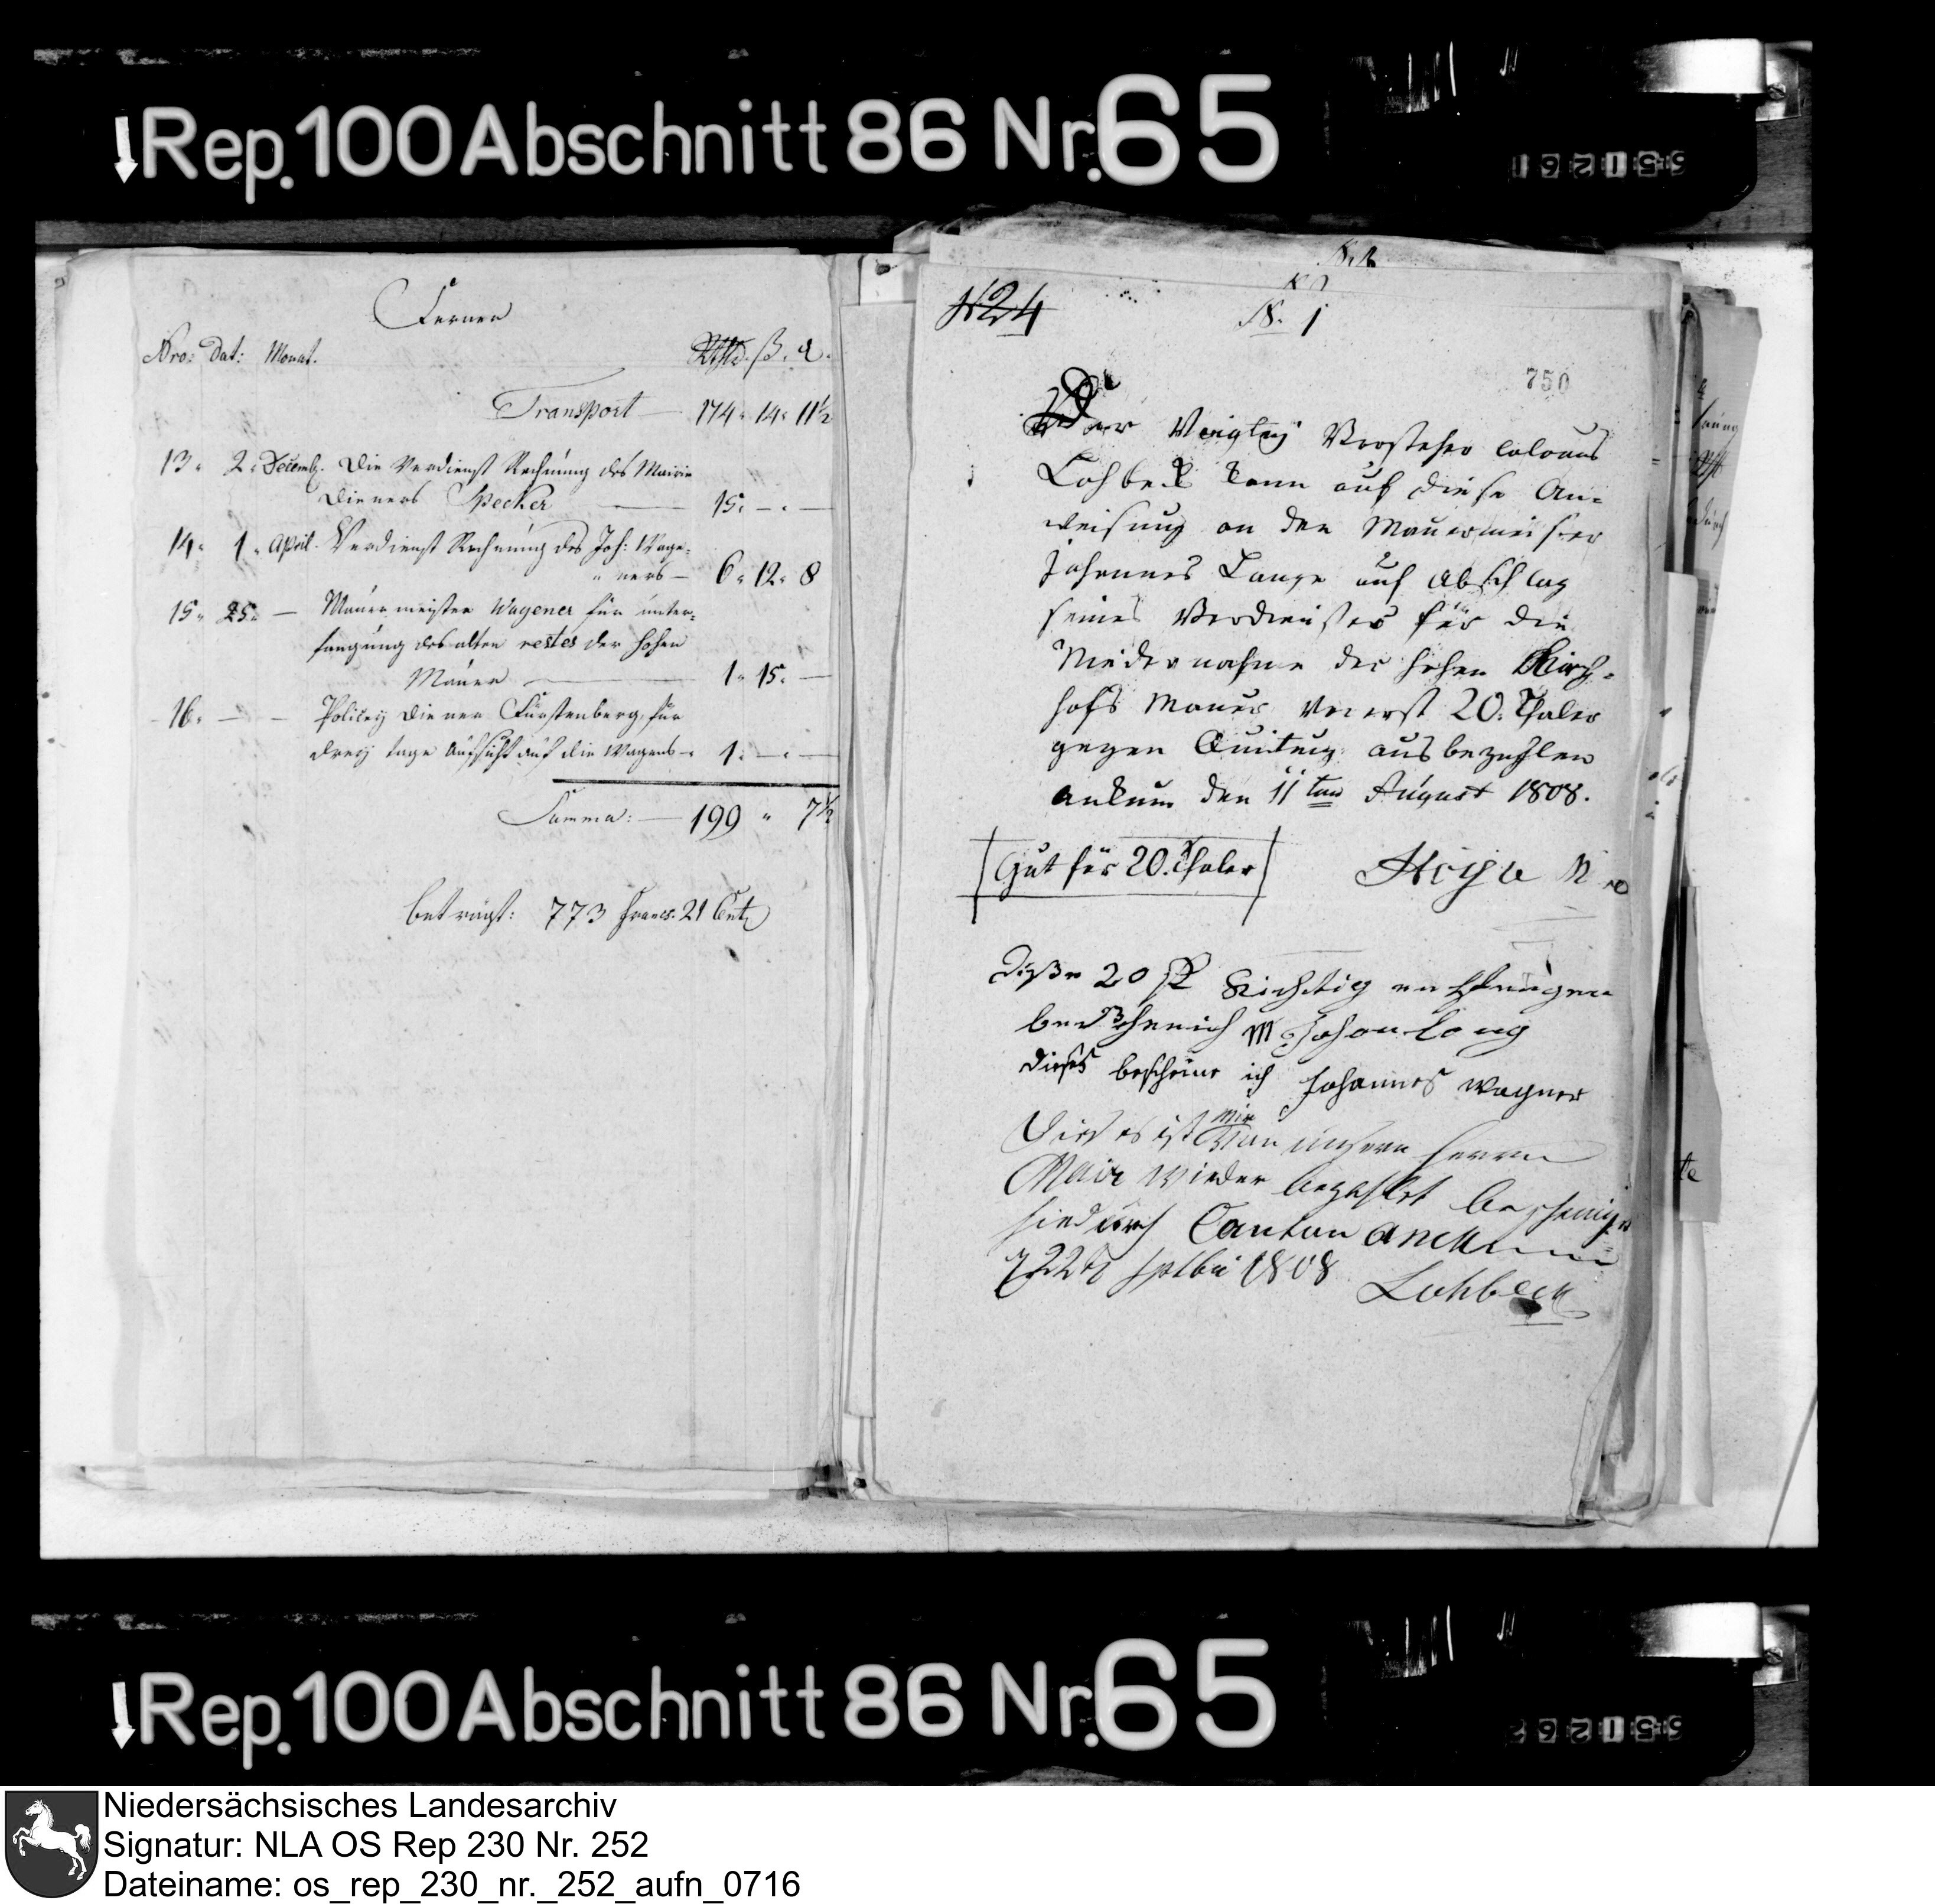 Rep. 100 Abschnitt 86 Nr. 65
Ferner
Nro: Dat: Monat. Rthlr. ß. d.
Transport — 174 " 14 " 11½
13 " 2 " Decemb. Die Verdienst Rechnung des Mairie
Dieners Specker — 15 " — " —
14 " 1 " April. Verdienst Rechnung des Joh: Wage-
" ners — 6 " 12 " 8
15 " 25 " — Mauermeister Wagener für unter-
fangung des alten restes der hohen
Mauer — 1 " 15 " —
16. — — Policey Diener Fürstenberg, für
drey tage Aufsicht auf die Wagens — 1 " — " —
Summa: — 199 " 7½
beträgt: 773 Francs. 21 Cent
N 24
N. 1
750
Der Vorsteher Colonus
Lohbeck kann auf diese An-
weisung an den Mauermeister
Johannes Lange auf Abschlag
seines Verdienstes für die
Niedernahme der hohen Kirch-
hofs Mauer vorerst 20. Thaler
gegen Quitung auszahlen
Ankum den 11ten August 1808.
Gut für 20. Thaler
Diße 20 Richtig entfangen
Johan Lang
Dieses bescheine ich Johannes Wagner
Dieses ist mir von unsern Herrn
Mair wieder bezahlt bescheinige
hiedurch Canton Anckum
22 1808 Lohbeck
Rep. 100 Abschnitt 86 Nr. 65
Niedersächsisches Landesarchiv
Signatur: NLA OS Rep 230 Nr. 252
Dateiname: os_rep_230_nr._252_aufn_0716